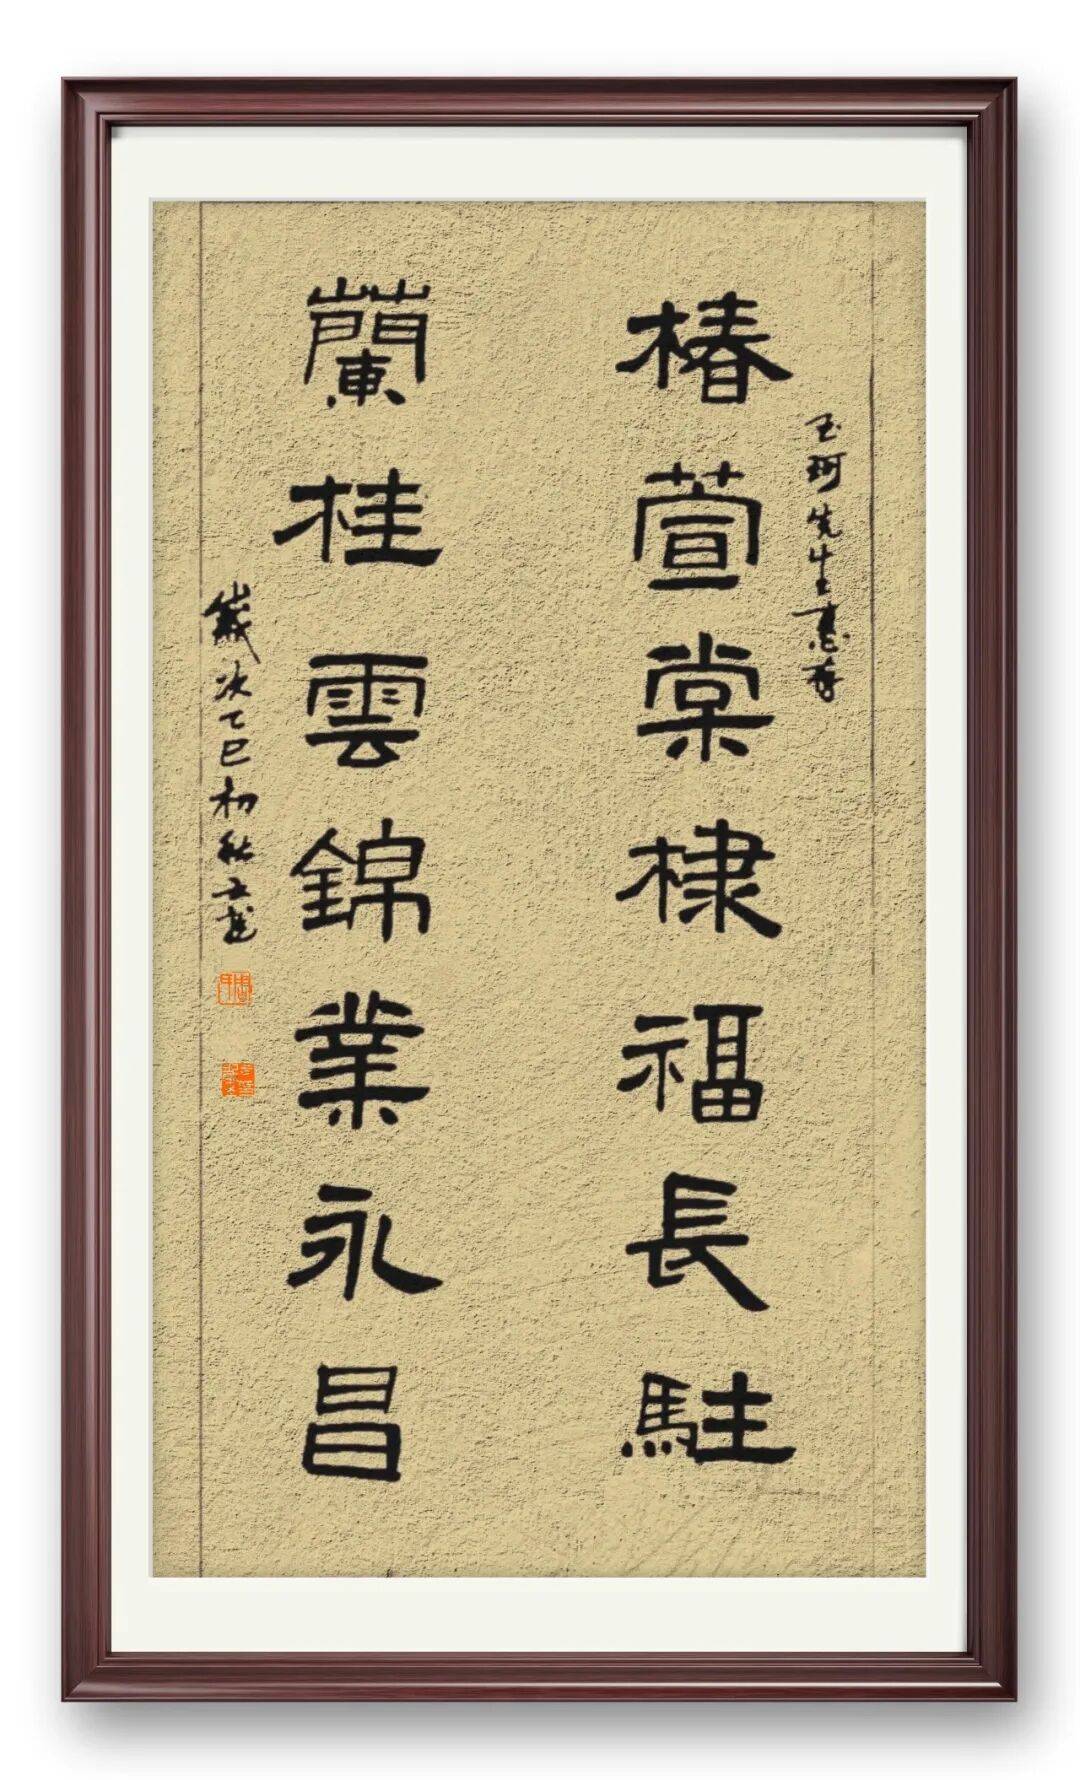 玉珂先生惠存
椿萱棠棣福長駐
蘭桂雲錦業永昌
歲次乙巳初秋